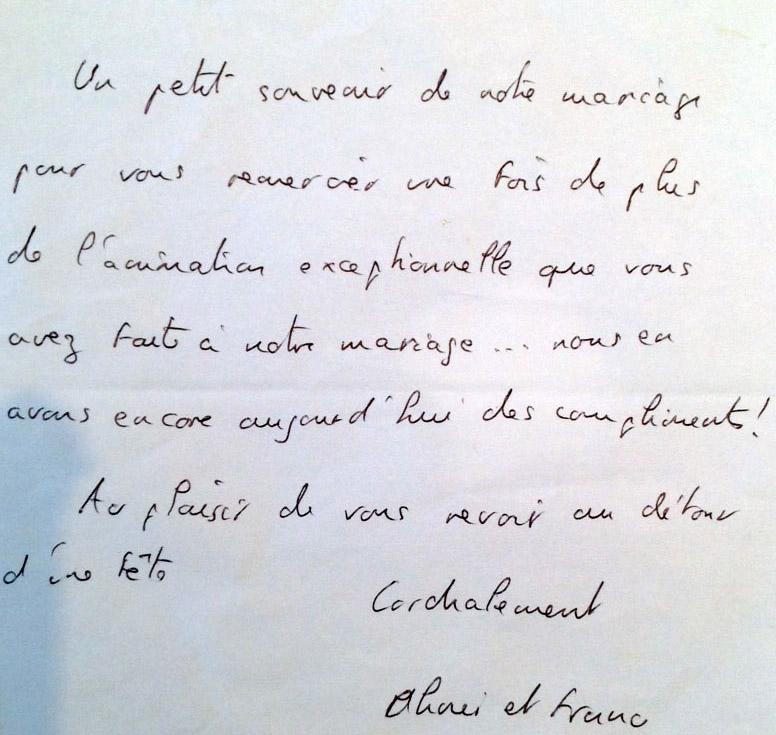 Un petit souvenir de notre mariage
pour vous remercier une fois de plus
de l'animation exceptionnelle que vous
avez fait à notre mariage... nous en
avons encore aujourd'hui des compliments!
Au plaisir de vous revoir au détour
d'une fête
Cordialement
et